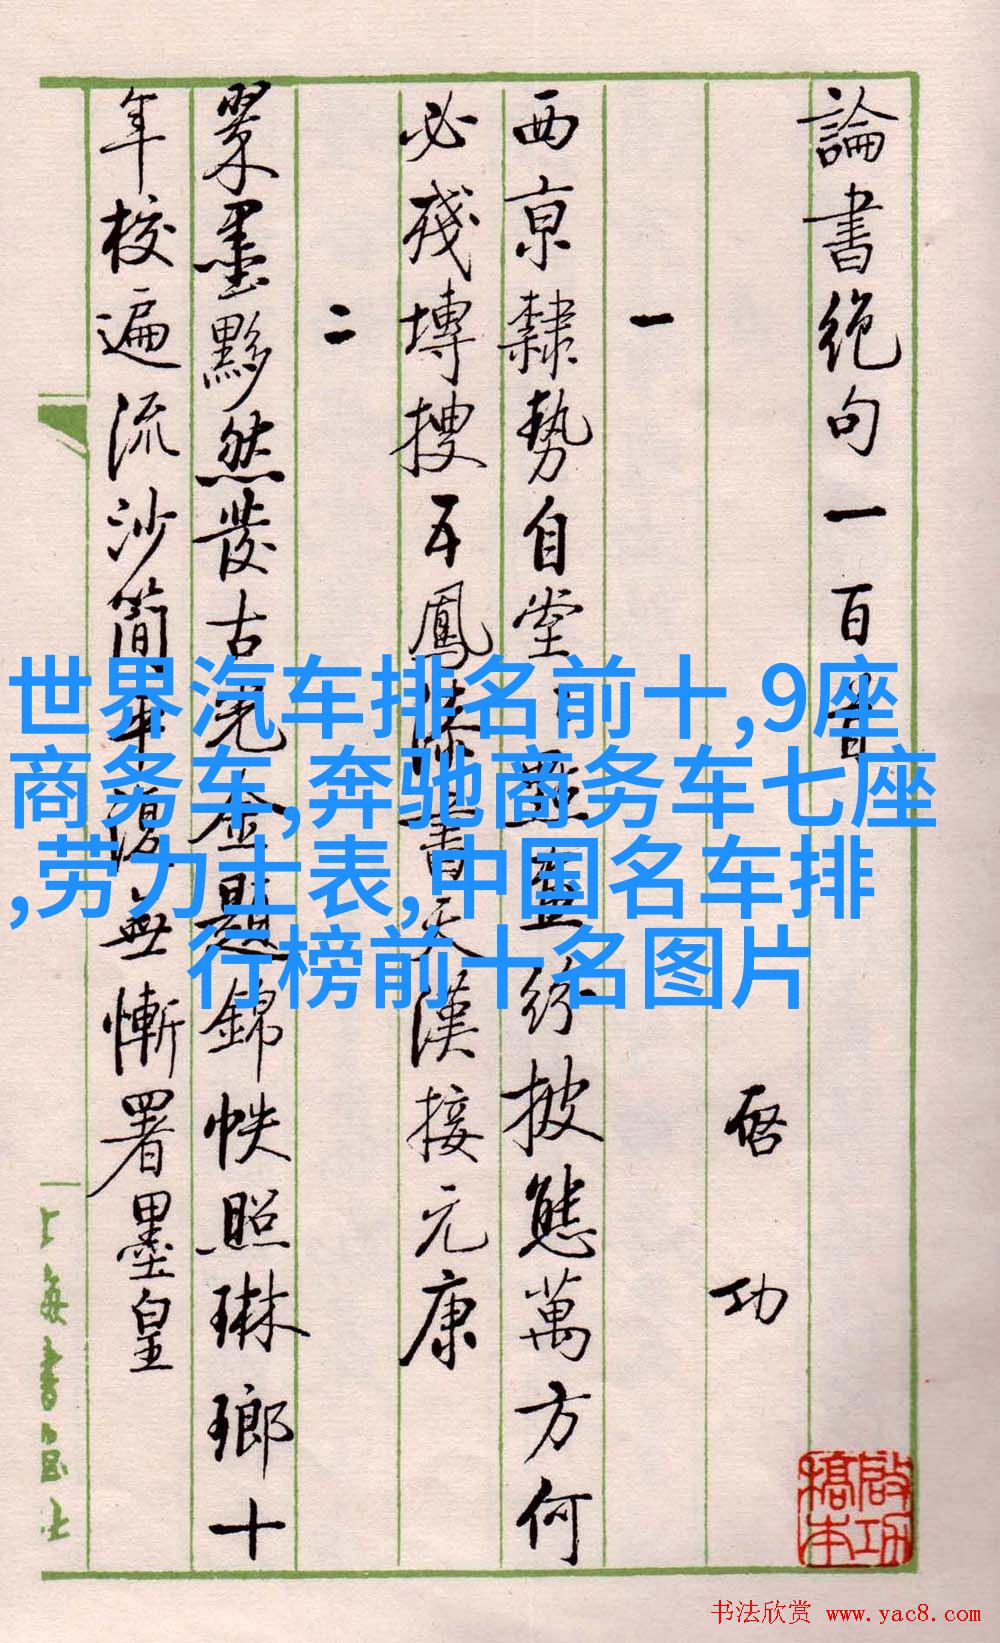 論書絕句一百首
啓功
一
西京隸勢自堂堂點畫紛披態萬方何
必殘塼搜五鳳漆書天漢接元康
二
翠墨黟然發古光金題錦帙照琳瑯十
年校遍流沙簡平復無慚署墨皇
上海書画社
啟功
稿本
世界汽车排名前十,9座
商务车,奔驰商务车七座
,劳力士表,中国名车排
行榜前十名图片
书法欣赏 www.yac8.com